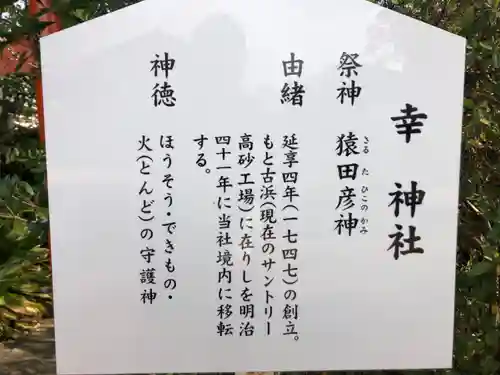 幸神社
祭神 猿田彦神
さる た ひこのかみ
由緒
延享四年(一七四七)の創立。
もと古浜(現在のサントリー
高砂工場)に在りしを明治
四十一年に当社境内に移転
する。
神徳
ほうそう・できもの・
火(とんど)の守護神